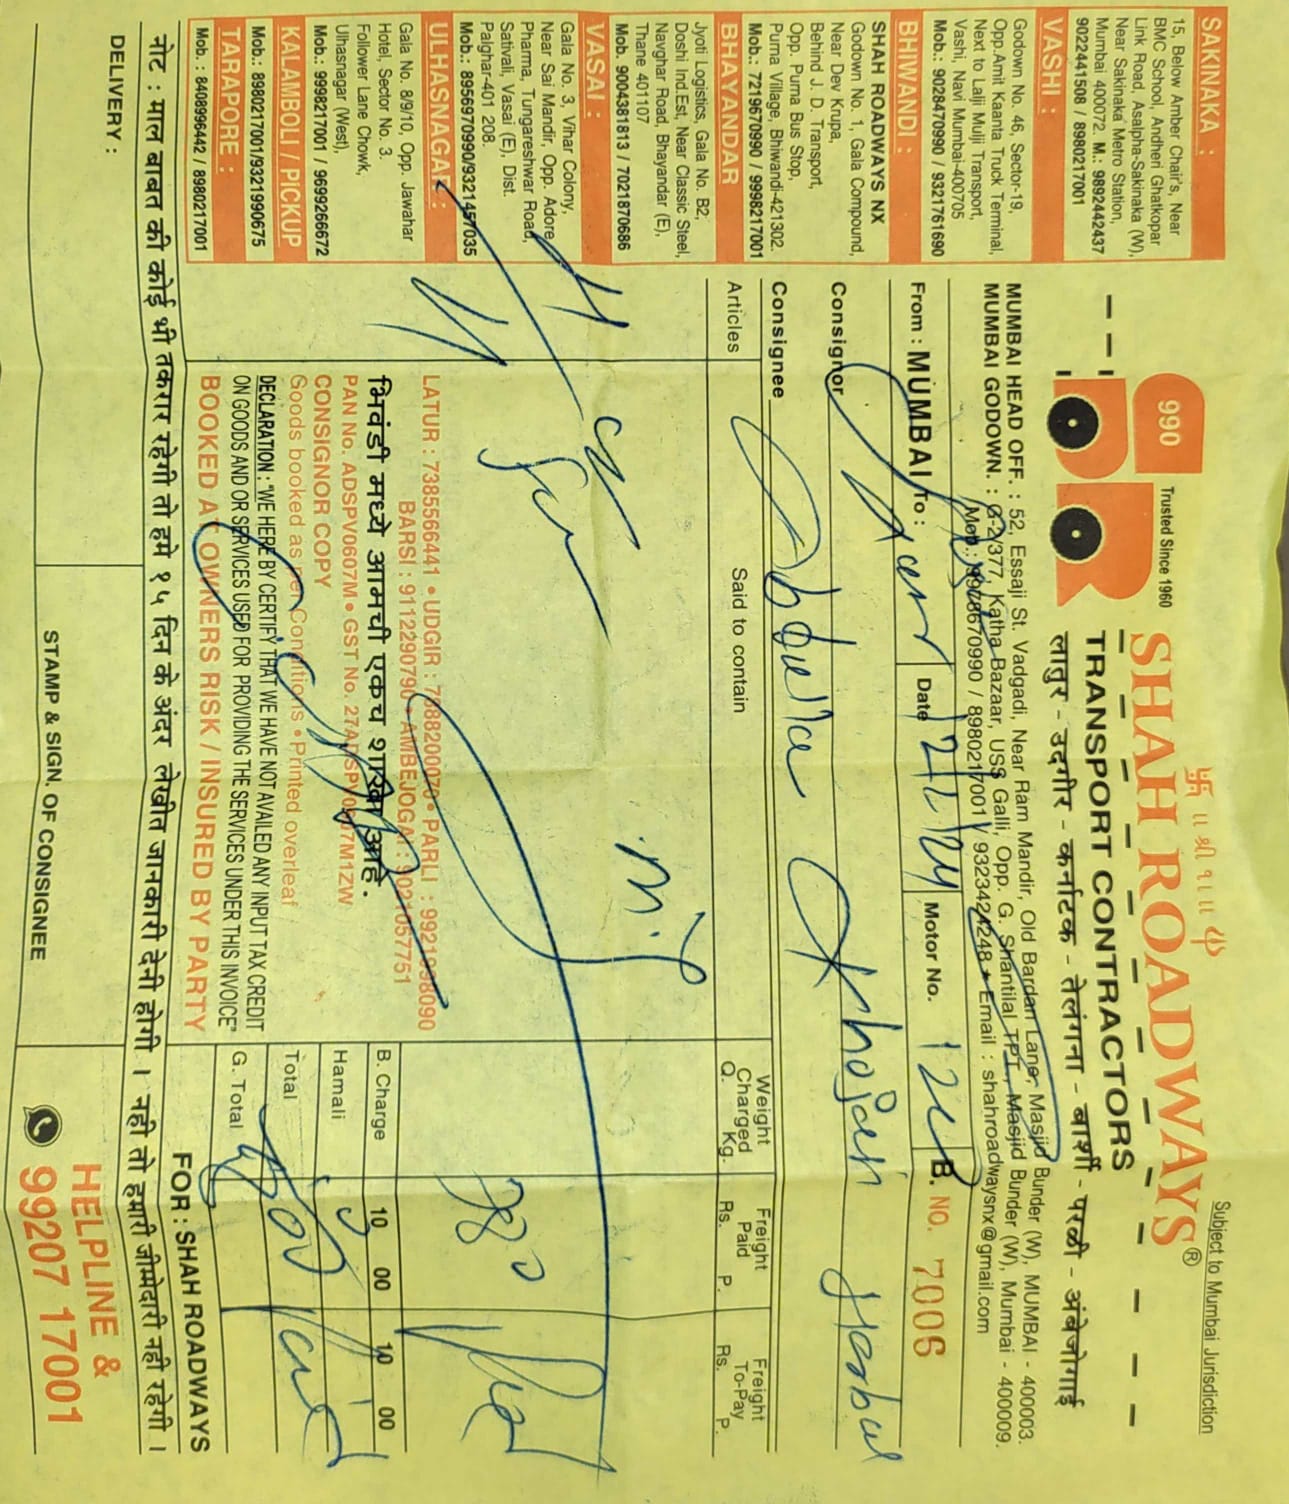 SAKINAKA :
15, Below Amber Chair's, Near
BMC School, Andheri Ghatkopar
Link Road, Asalpha-Sakinaka (W),
Near Sakinaka Metro Station,
Mumbai 400072. M.: 9892442437
9022441508 / 8980217001
VASHI :
Godown No. 46, Sector-19,
Opp.Amit Kaanta Truck Terminal,
Next to Lalji Mulji Transport,
Vashi, Navi Mumbai-400705
Mob.: 9028470990 / 9321761690
BHIWANDI :
SHAH ROADWAYS NX
Godown No. 1, Gala Compound,
Near Dev Krupa,
Behind J. D. Transport,
Opp. Purna Bus Stop,
Purna Village, Bhiwandi-421302.
Mob.: 7219670990 / 9998217001
BHAYANDAR
Jyoti Logistics, Gala No. B2,
Doshi Ind.Est, Near Classic Steel,
Navghar Road, Bhayandar (E),
Thane 401107
Mob. 9004381813 / 7021870686
VASAI :
Gala No. 3, Vihar Colony,
Near Sai Mandir, Opp. Adore
Pharma, Tungareshwar Road,
Sativali, Vasai (E), Dist.
Palghar-401 208.
Mob.: 8956970990/9321457035
ULHASNAGAR :
Gala No. 8/9/10, Opp. Jawahar
Hotel, Sector No. 3.
Follower Lane Chowk,
Ulhasnagar (West),
Mob.: 9998217001 / 9699266672
KALAMBOLI / PICKUP
Mob.: 8980217001/9321990675
TARAPORE :
Mob. : 8408996442 / 8980217001
Subject to Mumbai Jurisdiction
॥ श्री १॥
990
Trusted Since 1960
SHAH ROADWAYS®
TRANSPORT CONTRACTORS
लातुर - उदगीर - कर्नाटक - तेलंगना - बार्शी - परळी - अंबेजोगाई
MUMBAI HEAD OFF. : 52, Essaji St. Vadgadi, Near Ram Mandir, Old Bardan Lane, Masjid Bunder (W), MUMBAI - 400003.
MUMBAI GODOWN. : G-2/377, Katha Bazaar, USS Galli, Opp. G. Shantilal TPT., Masjid Bunder (W), Mumbai - 400009.
Mob.: 9978670990 / 8980217001 / 9323424248 • Email : shahroadwaysnx@gmail.com
From : MUMBAI To : Date Motor No. B. NO. 7006
Consignor
Consignee Abdulla
Articles Said to contain Weight Charged Q. Kg. Freight Paid Rs. P. Freight To-Pay Rs. P.
380
LATUR : 7385566441 • UDGIR : 7888200070 • PARLI : 9921998090
BARSI : 9112290790 • AMBEJOGAI : 9021057751
भिवंडी मध्ये आमची एकच शाखा आहे.
PAN No. ADSPV0607M • GST No. 27ADSPV0607M1ZW
CONSIGNOR COPY
Goods booked as per Conditions • Printed overleaf
DECLARATION : "WE HERE BY CERTIFY THAT WE HAVE NOT AVAILED ANY INPUT TAX CREDIT
ON GOODS AND OR SERVICES USED FOR PROVIDING THE SERVICES UNDER THIS INVOICE"
BOOKED AT OWNERS RISK / INSURED BY PARTY
B. Charge 10 00 10 00
Hamali
Total
G. Total
FOR : SHAH ROADWAYS
नोट : माल बाबत की कोई भी तकरार रहेगी तो हमे १५ दिन के अंदर लेखीत जानकारी देनी होगी । नही तो हमारी जीम्मेदारी नही रहेगी ।
DELIVERY :
STAMP & SIGN. OF CONSIGNEE
HELPLINE &
99207 17001